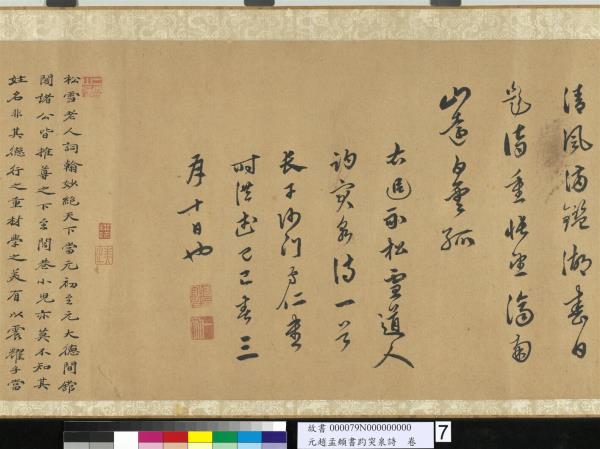 清風滿鑑湖春日
題詩重悵望
山遠白雲孤
右追和松雪道人
趵突泉詩一首
時洪武己巳春三
月十日也
松雪老人詞翰妙絕天下當元初至元大德間館
閣諸公皆推尊之下至閭巷小兒亦莫不知其
姓名非其德行之重材學之美有以震耀乎當
故書 000079N000000000
元趙孟頫書趵突泉詩 卷
7